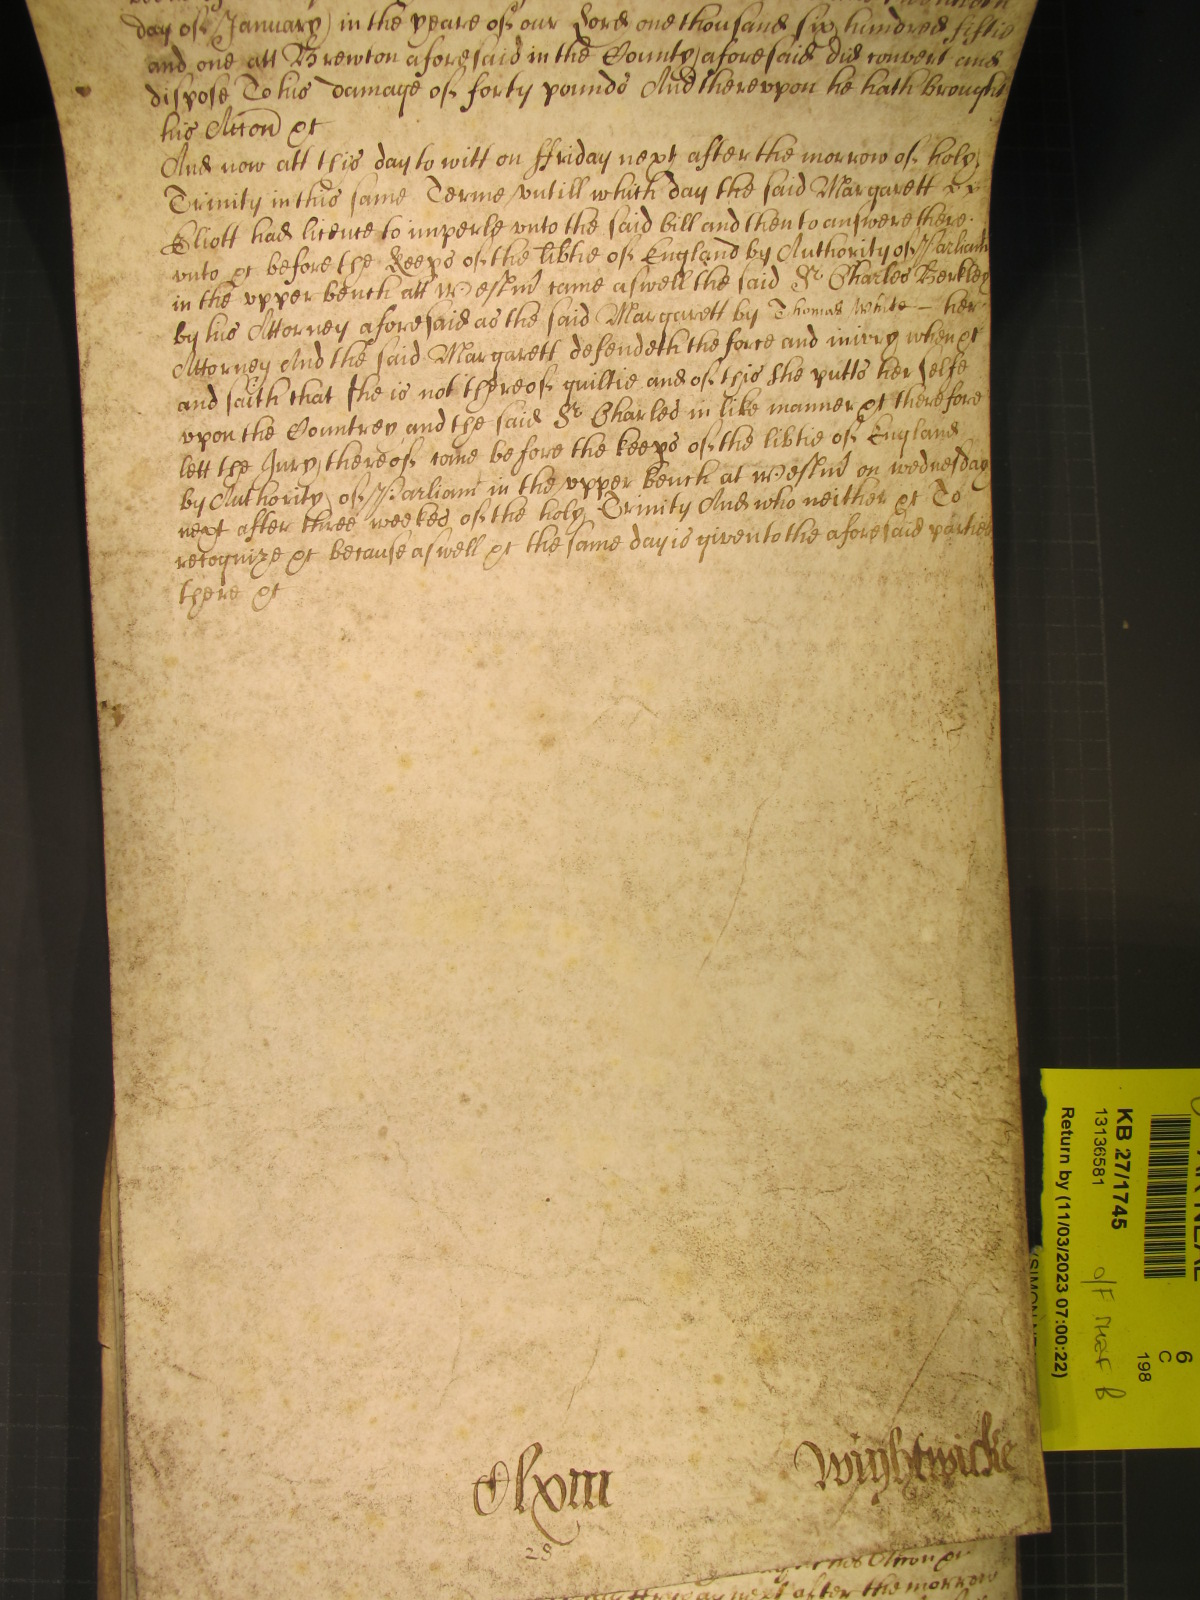 day of January in the yeare of our Lord one thousand six hundred fiftie
and one att Brewton aforesaid in the County aforesaid did convert and
dispose To his damage of forty pounds And therevpon he hath brought
his Accon &c
And now att this day to witt on ffriday next after the morrow of holy
Trinity in this same Terme vntill which day the said Margarett
Eliott had licence to imperle vnto the said bill and then to answere there
vnto &c before the Keeps of the libtie of England by Authority of Parliamt
in the vpper bench att Westmr came aswell the said Sr Charles Berkley
by his Attorney aforesaid as the said Margarett by Thomas White — her
Attorney And the said Margarett defendeth the force and iniury when &c
and saith that she is not thereof guiltie and of this she putts her selfe
vpon the Countrey and the said Sr Charles in like manner &c therefore
lett the Jury thereof come before the keeps of the libtie of England
by Authority of Parliamt in the vpper bench at Westmr on wednesday
next after three weekes of the holy Trinity And who neither &c To
recognize &c because aswell &c the same day is given to the aforesaid parties
there &c
Clxiii
Wightwicke
28
next after the morrow
KB 27/1745
13136581
Return by (11/03/2023 07:00:22)
6
C
198